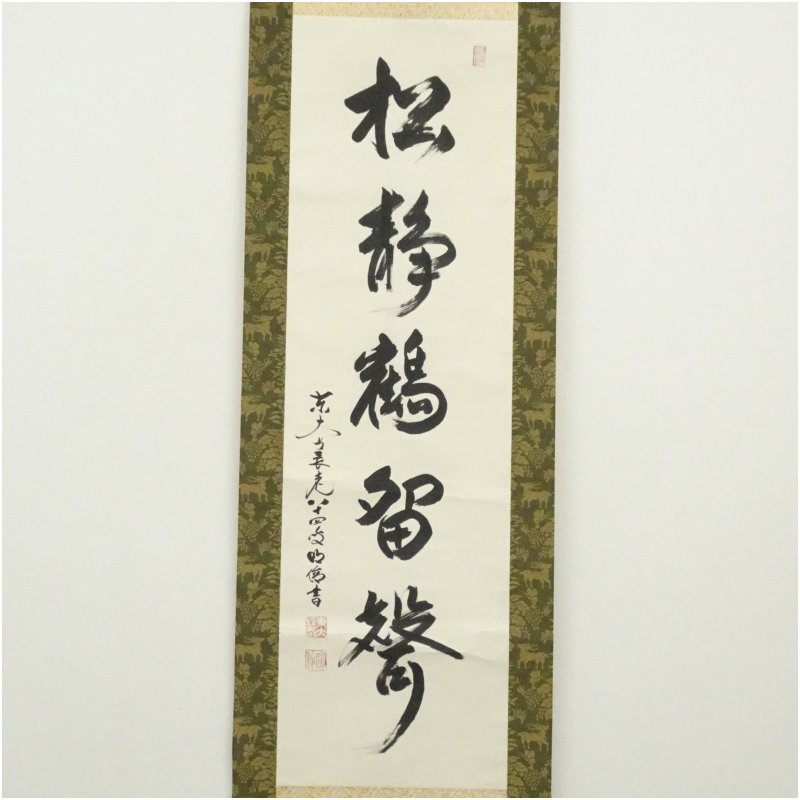 松静鶴留聲
東大寺長老八十四叟明俊書